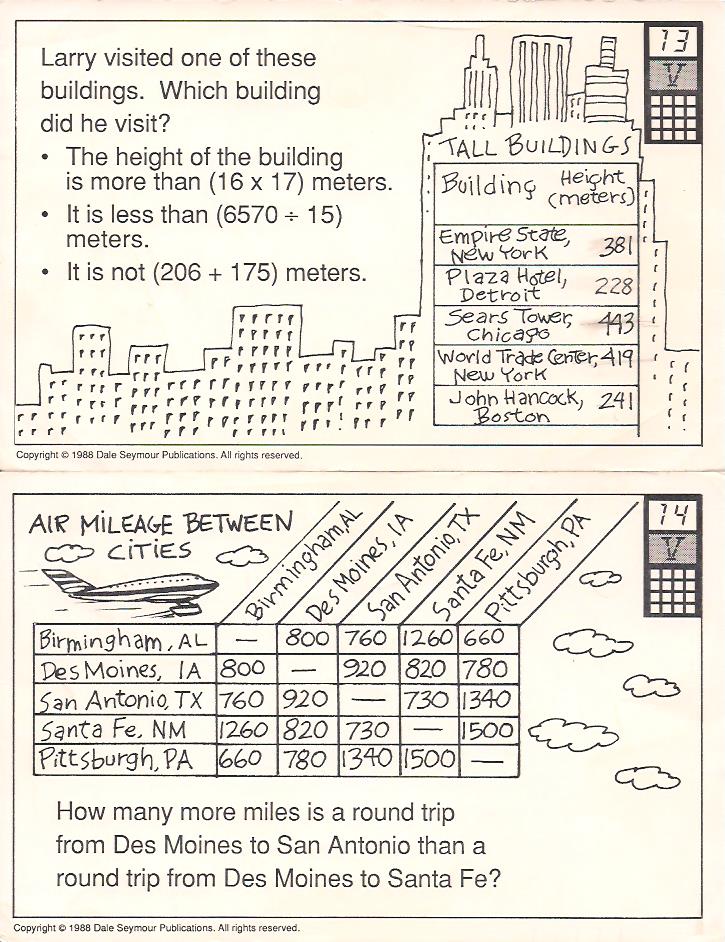 Larry visited one of these
buildings. Which building
did he visit?
• The height of the building
is more than (16 x 17) meters.
• It is less than (6570 ÷ 15)
meters.
• It is not (206 + 175) meters.
13
V
TALL BUILDINGS
Building Height
(meters)
Empire State,
New York 381
Plaza Hotel,
Detroit 228
Sears Tower,
Chicago 443
World Trade Center, 419
New York
John Hancock, 241
Boston
Copyright © 1988 Dale Seymour Publications. All rights reserved.
14
V
AIR MILEAGE BETWEEN
CITIES
Birmingham, AL
Des Moines, IA
San Antonio, TX
Santa Fe, NM
Pittsburgh, PA
Birmingham, AL — 800 760 1260 660
Des Moines, IA 800 — 920 820 780
San Antonio, TX 760 920 — 730 1340
Santa Fe, NM 1260 820 730 — 1500
Pittsburgh, PA 660 780 1340 1500 —
How many more miles is a round trip
from Des Moines to San Antonio than a
round trip from Des Moines to Santa Fe?
Copyright © 1988 Dale Seymour Publications. All rights reserved.